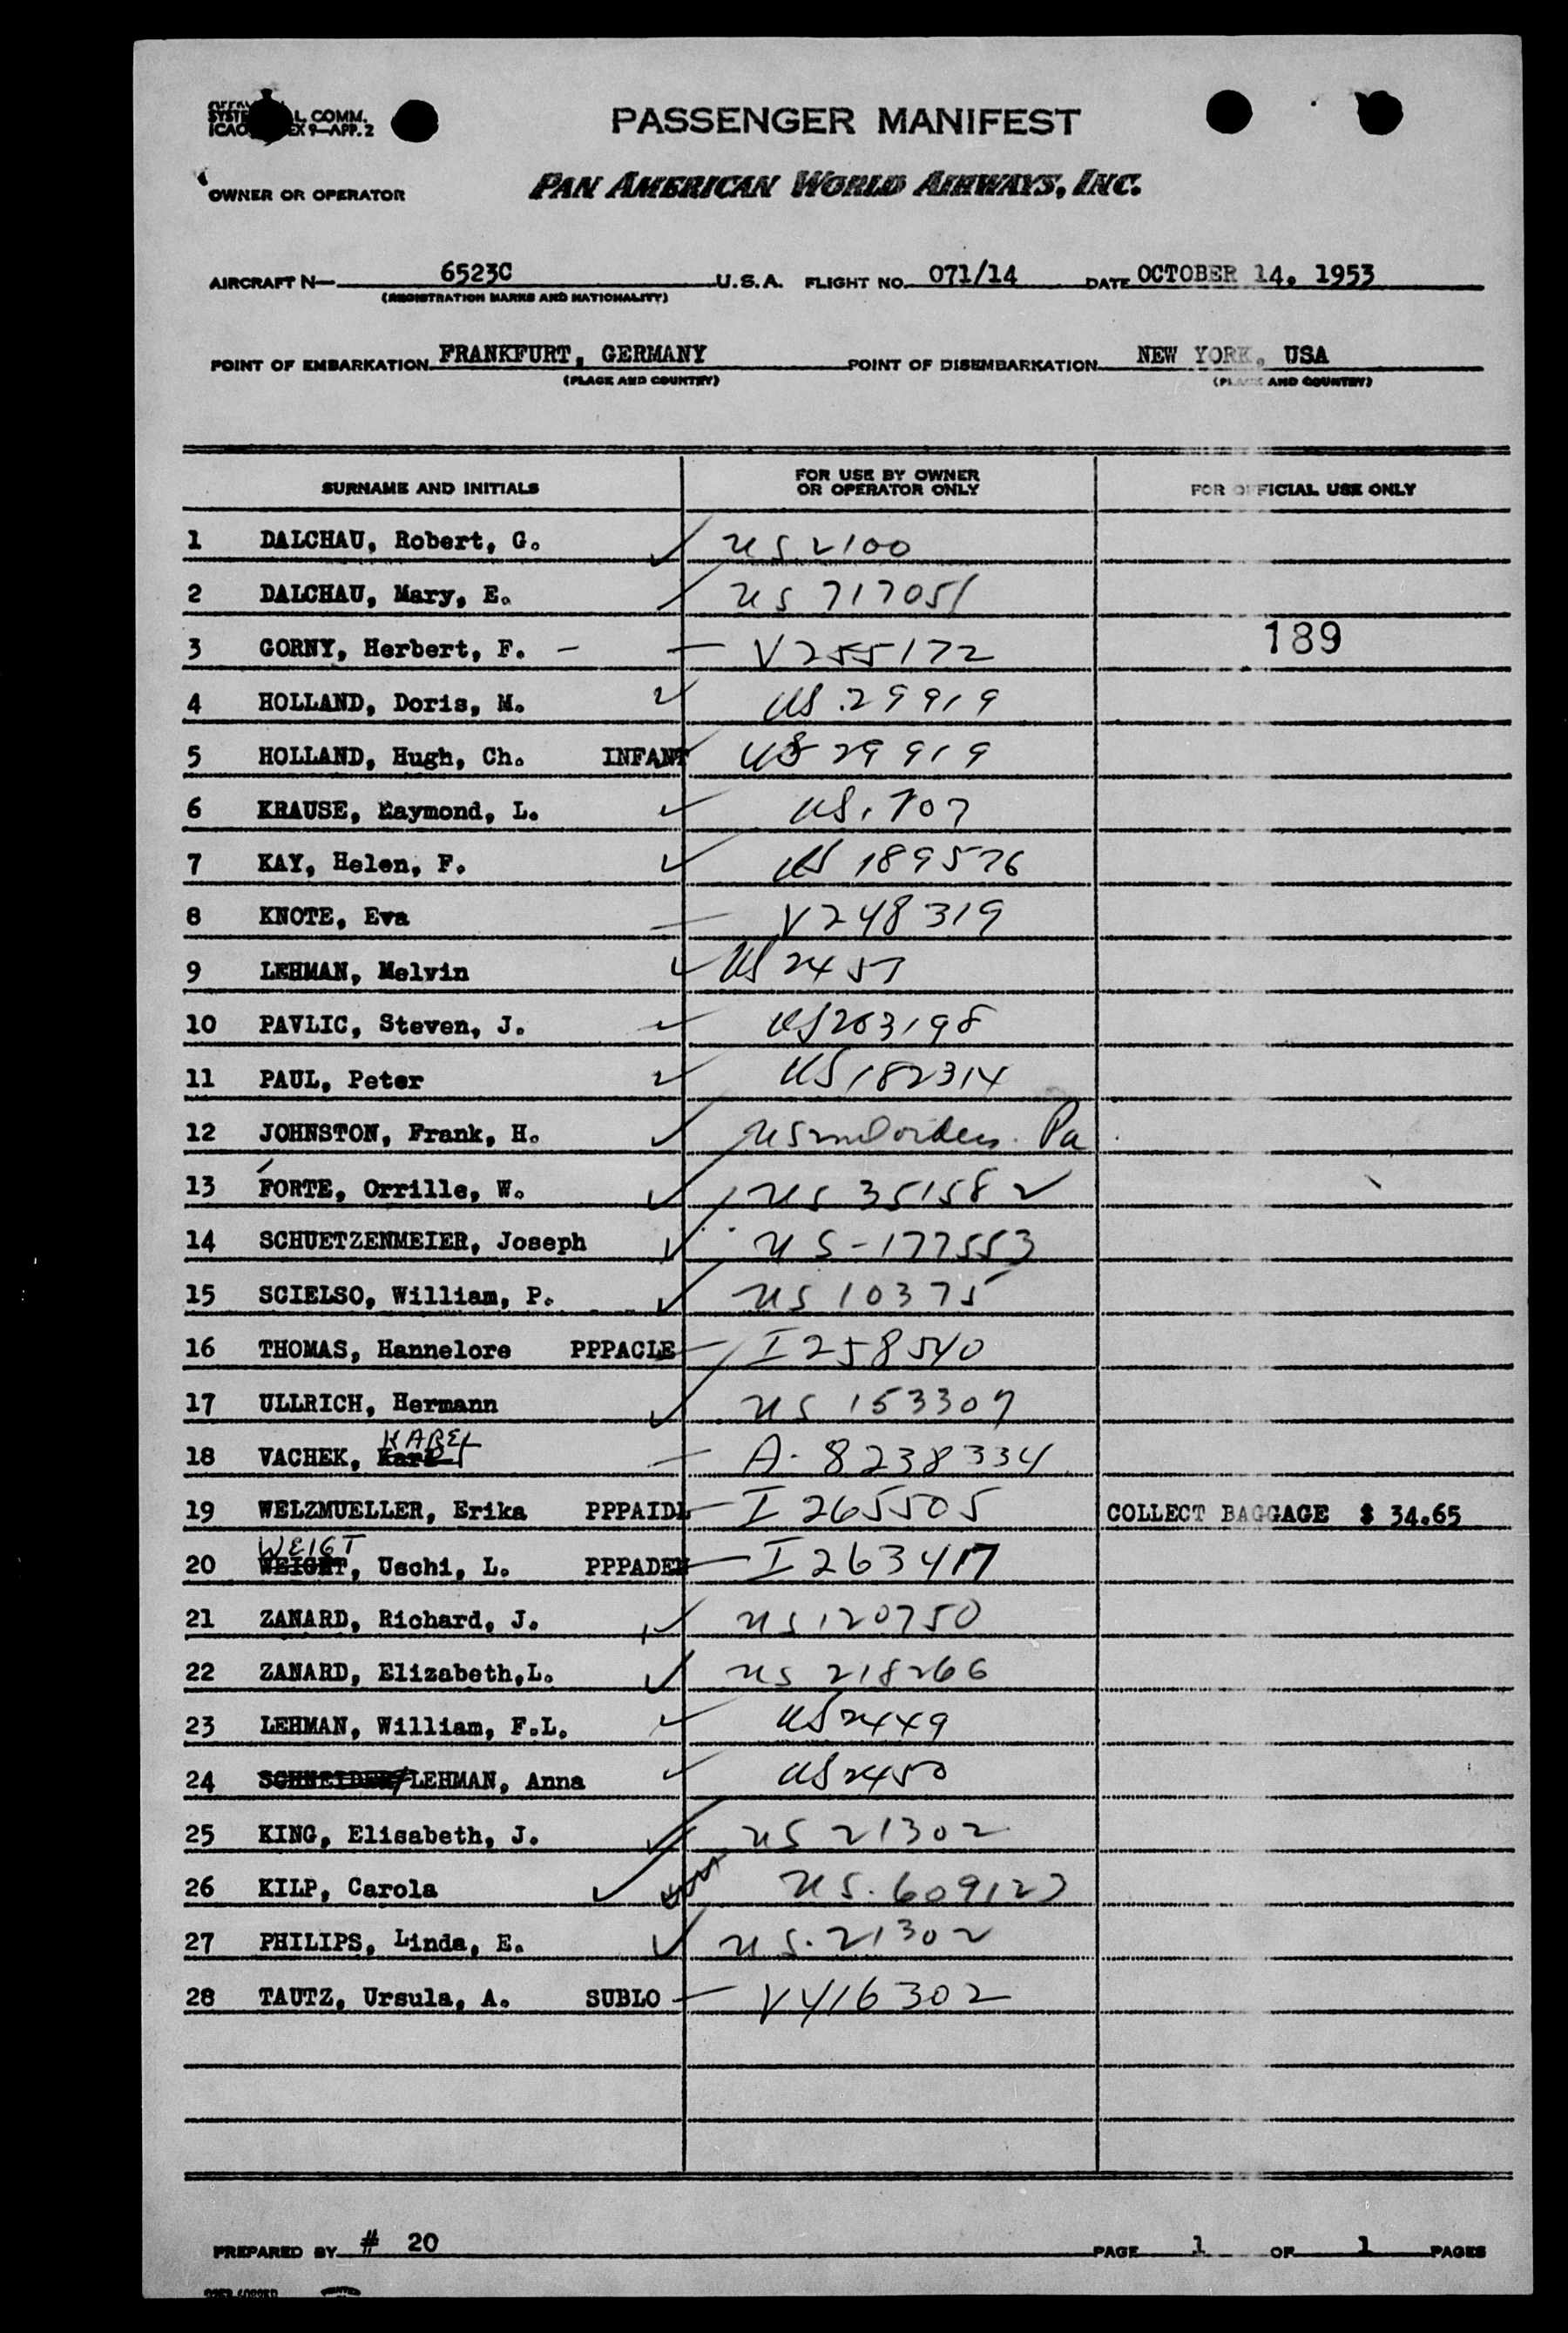 L COMM.
ICAO EX 9—APP. 2
PASSENGER MANIFEST
OWNER OR OPERATOR PAN AMERICAN WORLD AIRWAYS, INC.
AIRCRAFT N— 6523C U.S.A. FLIGHT NO. 071/14 DATE OCTOBER 14, 1953
(REGISTRATION MARKS AND NATIONALITY)
POINT OF EMBARKATION FRANKFURT, GERMANY POINT OF DISEMBARKATION NEW YORK, USA
(PLACE AND COUNTRY) (PLACE AND COUNTRY)
SURNAME AND INITIALS FOR USE BY OWNER OR OPERATOR ONLY FOR OFFICIAL USE ONLY
1 DALCHAU, Robert, G. US 2100
2 DALCHAU, Mary, E. US 717051
3 GORNY, Herbert, F. – V255172 189
4 HOLLAND, Doris, M. US.29919
5 HOLLAND, Hugh, Ch. INFANT US 29919
6 KRAUSE, Raymond, L. US.707
7 KAY, Helen, F. US 189576
8 KNOTE, Eva V248319
9 LEHMAN, Melvin US 2457
10 PAVLIC, Steven, J. US203198
11 PAUL, Peter US182314
12 JOHNSTON, Frank, H. US Pa
13 FORTE, Orrille, W. US 351582
14 SCHUETZENMEIER, Joseph US-177553
15 SCIELSO, William, P. US 10375
16 THOMAS, Hannelore PPPACLE I 258540
17 ULLRICH, Hermann US 153307
18 VACHEK, Karl KAREL A-8238334
19 WELZMUELLER, Erika PPPAIDL I 265505 COLLECT BAGGAGE $ 34.65
WEIGT
20 WEIGHT, Uschi, L. PPPADEN I 263417
21 ZANARD, Richard, J. US 120750
22 ZANARD, Elizabeth,L. US 218266
23 LEHMAN, William, F.L. US2449
24 SCHNEIDER/LEHMAN, Anna US2450
25 KING, Elisabeth, J. US 21302
26 KILP, Carola US.609123
27 PHILIPS, Linda, E. US.21302
28 TAUTZ, Ursula, A. SUBLO V416302
PREPARED BY # 20 PAGE 1 OF 1 PAGES